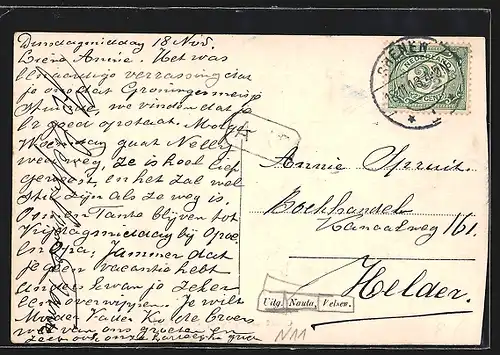 Dinsdagmiddag 18 Nov.
Lieve Annie. Het was
een aardige verrassing dat
je ons dat Groningermeisje
stuurde, we vinden dat je
er goed opstaat. Morgen
Woensdag gaat Nelly
weer weg, ze is heel lief
geweest, en het zal wel
stil zijn als ze weg is.
Oom en Tante blijven tot
Vrijdagmiddag bij Opoe
en Opa. Jammer dat
je geen vacantie hebt
anders kwam je zeker
eens overwippen. Je wilt
Moeder Vader Ko de broers
wel van ons groeten en
NEDERLAND
Annie Spruit.
Boekhandel
Kanaalweg 161.
Helder.
Uitg. Nauta, Velsen.
N11